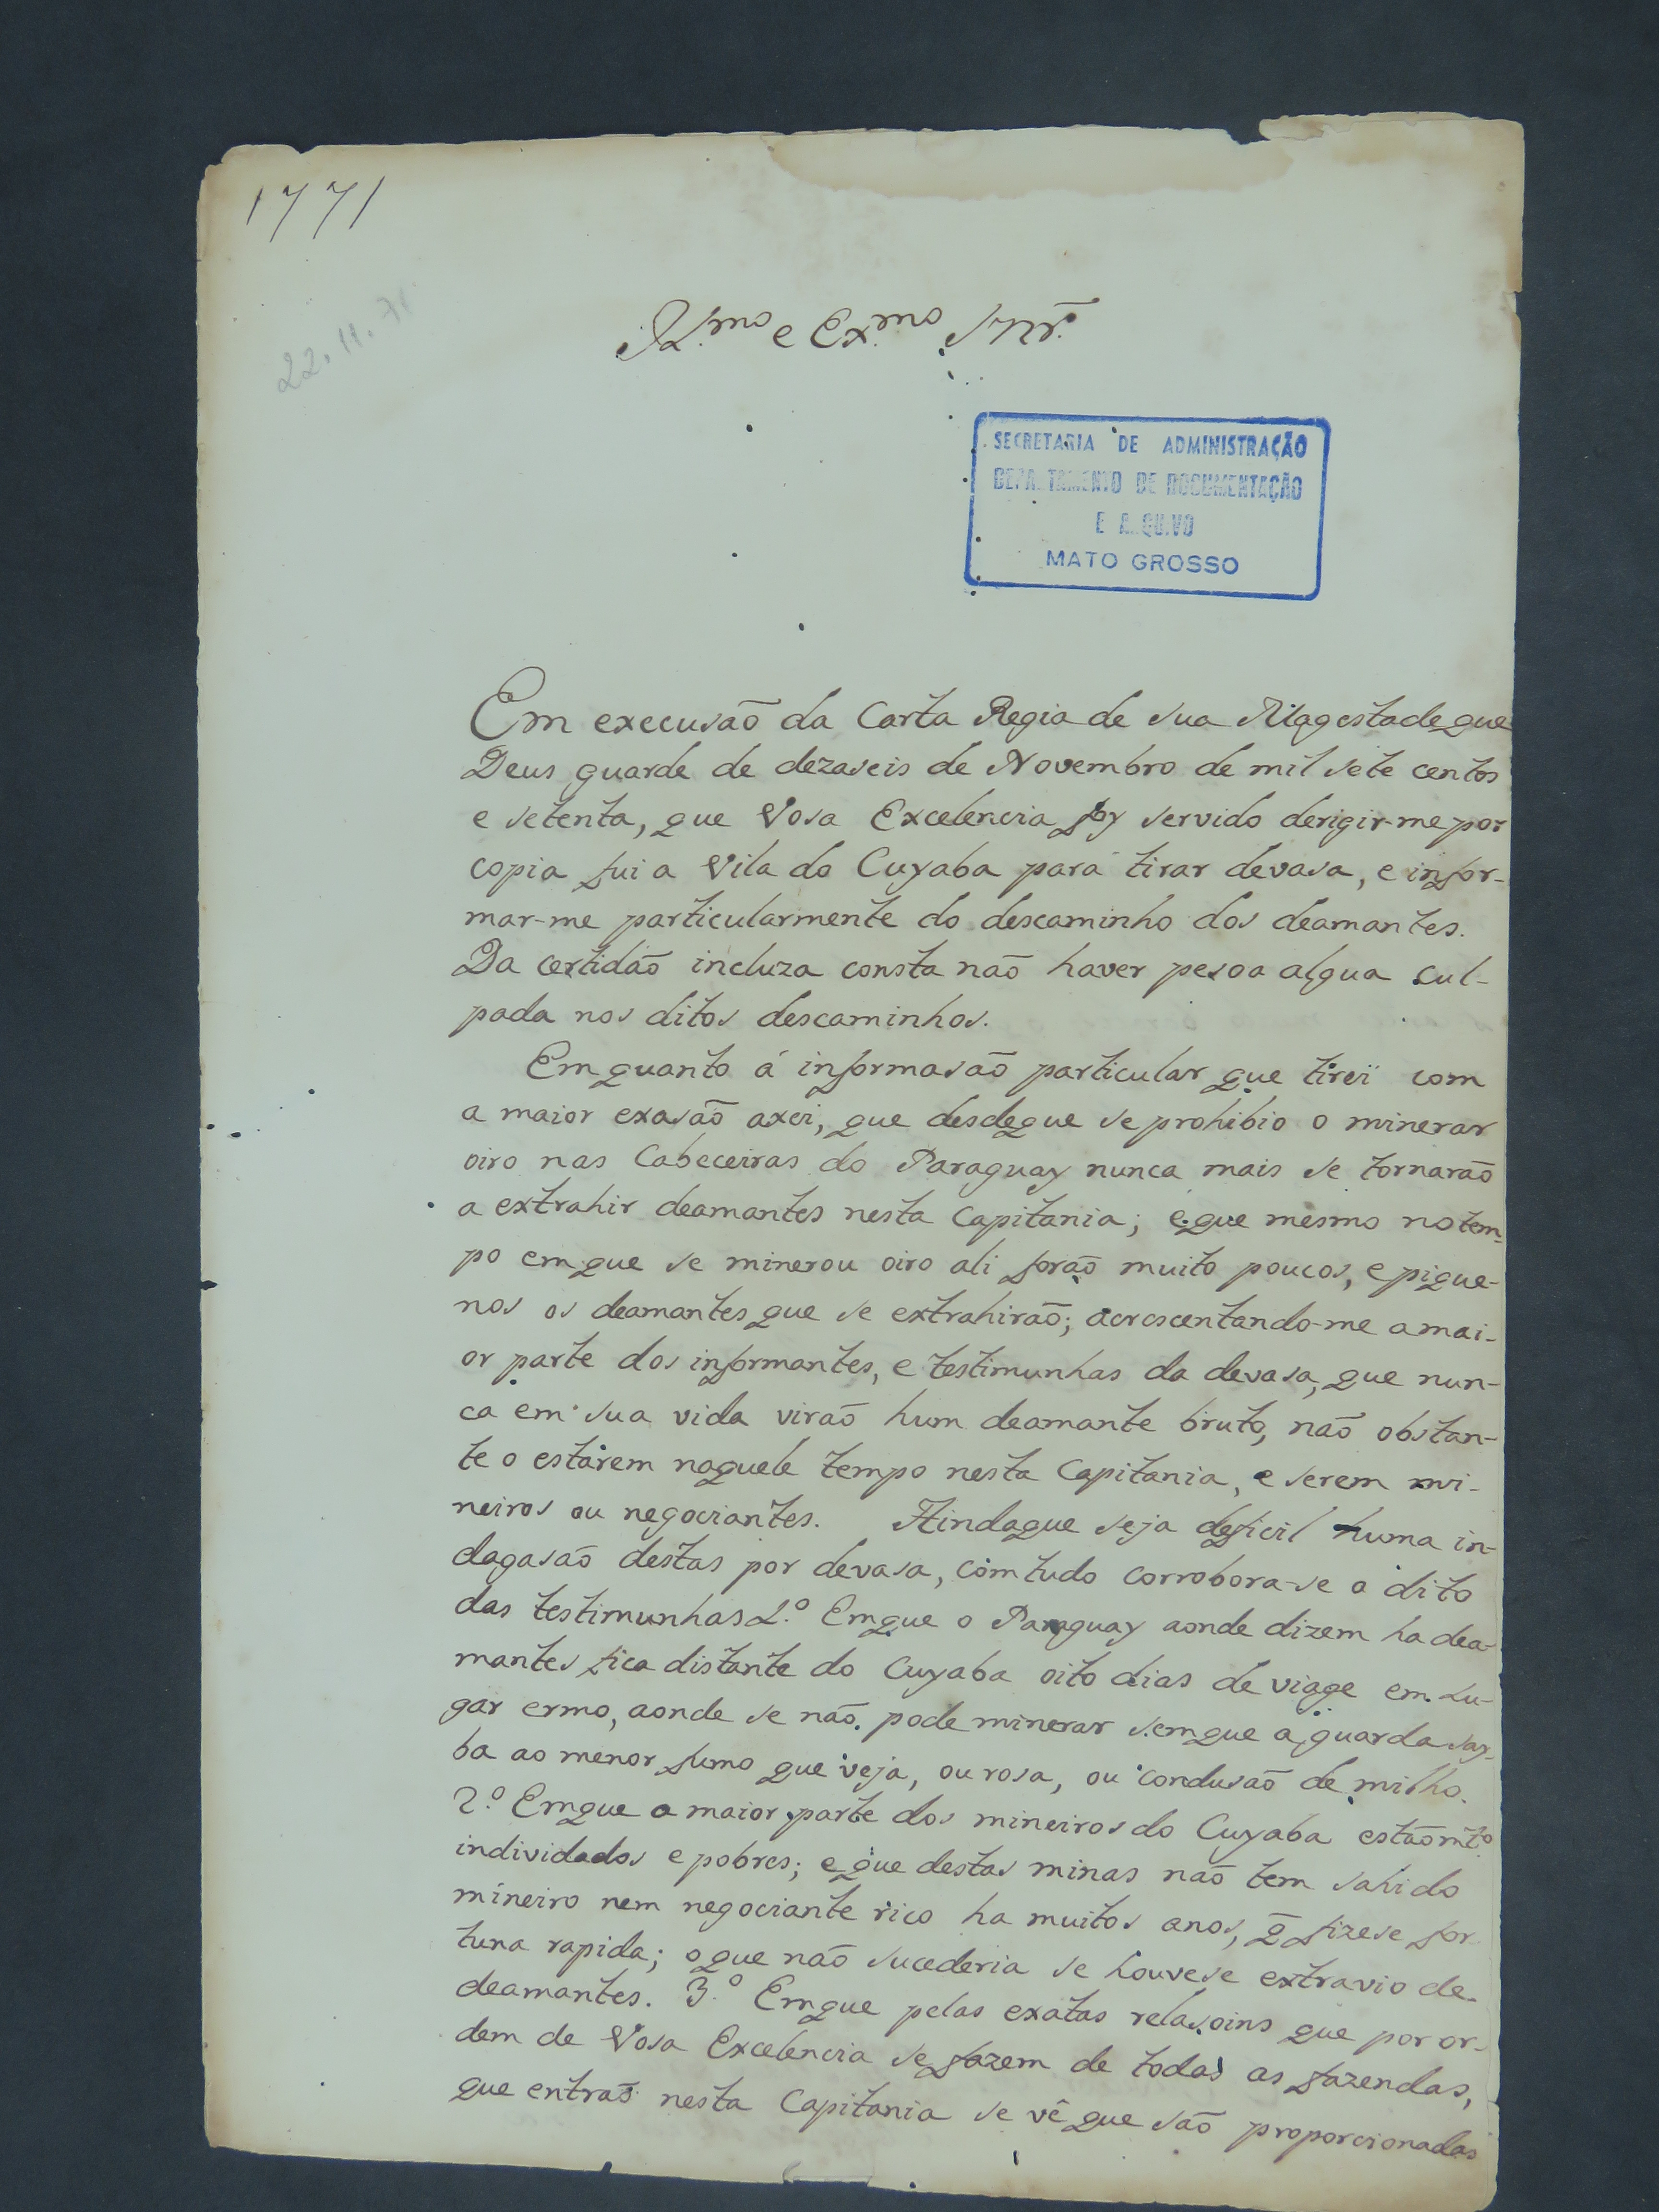 1771
22.11.71
Il.mo e Ex.mo Snr.
SECRETARIA DE ADMINISTRAÇÃO
DEPARTAMENTO DE DOCUMENTAÇÃO
E ARQUIVO
MATO GROSSO
Em execusão da Carta Regia de sua Magestade que
Deus guarde de dezaseis de Novembro de mil sete centos
e setenta, que Vosa Excelencia foy servido derigir-me por
copia fui a Vila do Cuyaba para tirar devasa, e infor-
mar-me particularmente do descaminho dos deamantes.
Da certidão incluza consta não haver pesoa algua cul-
pada nos ditos descaminhos.
Emquanto á informasão particular que tirei com
a maior exasão axei, que desdeque se prohibio o minerar
oiro nas Cabeceiras do Paraguay nunca mais se tornarão
a extrahir deamantes nesta Capitania; e que mesmo no tem-
po emque se minerou oiro ali forão muito poucos, e pique-
nos os deamantes que se extrahirão; acrescentando-me a mai-
or parte dos informantes, e testimunhas da devasa, que nun-
ca em sua vida virão hum deamante bruto, não obstan-
te o estarem naquele tempo nesta Capitania, e serem mi-
neiros ou negociantes. Aindaque seja deficil huma in-
dagasão destas por devasa, comtudo corrobora-se o dito
das testimunhas 1.º Emque o Paraguay aonde dizem ha dea-
mantes fica distante do Cuyaba oito dias de viage em Lu-
gar ermo, aonde se não pode minerar semque a guarda say-
ba ao menor fumo que veja, ou rosa, ou condusão de milho.
2.º Emque a maior parte dos mineiros do Cuyaba estão mt.º
individados e pobres; e que destas minas não tem sahido
mineiro nem negociante rico ha muitos anos, q̃ fizese for
tuna rapida; o que não sucederia se houvese extravio de
deamantes. 3.º Emque pelas exatas relasoins que por or-
dem de Vosa Excelencia se fazem de todas as fazendas,
que entrão nesta Capitania se vê que são proporcionadas